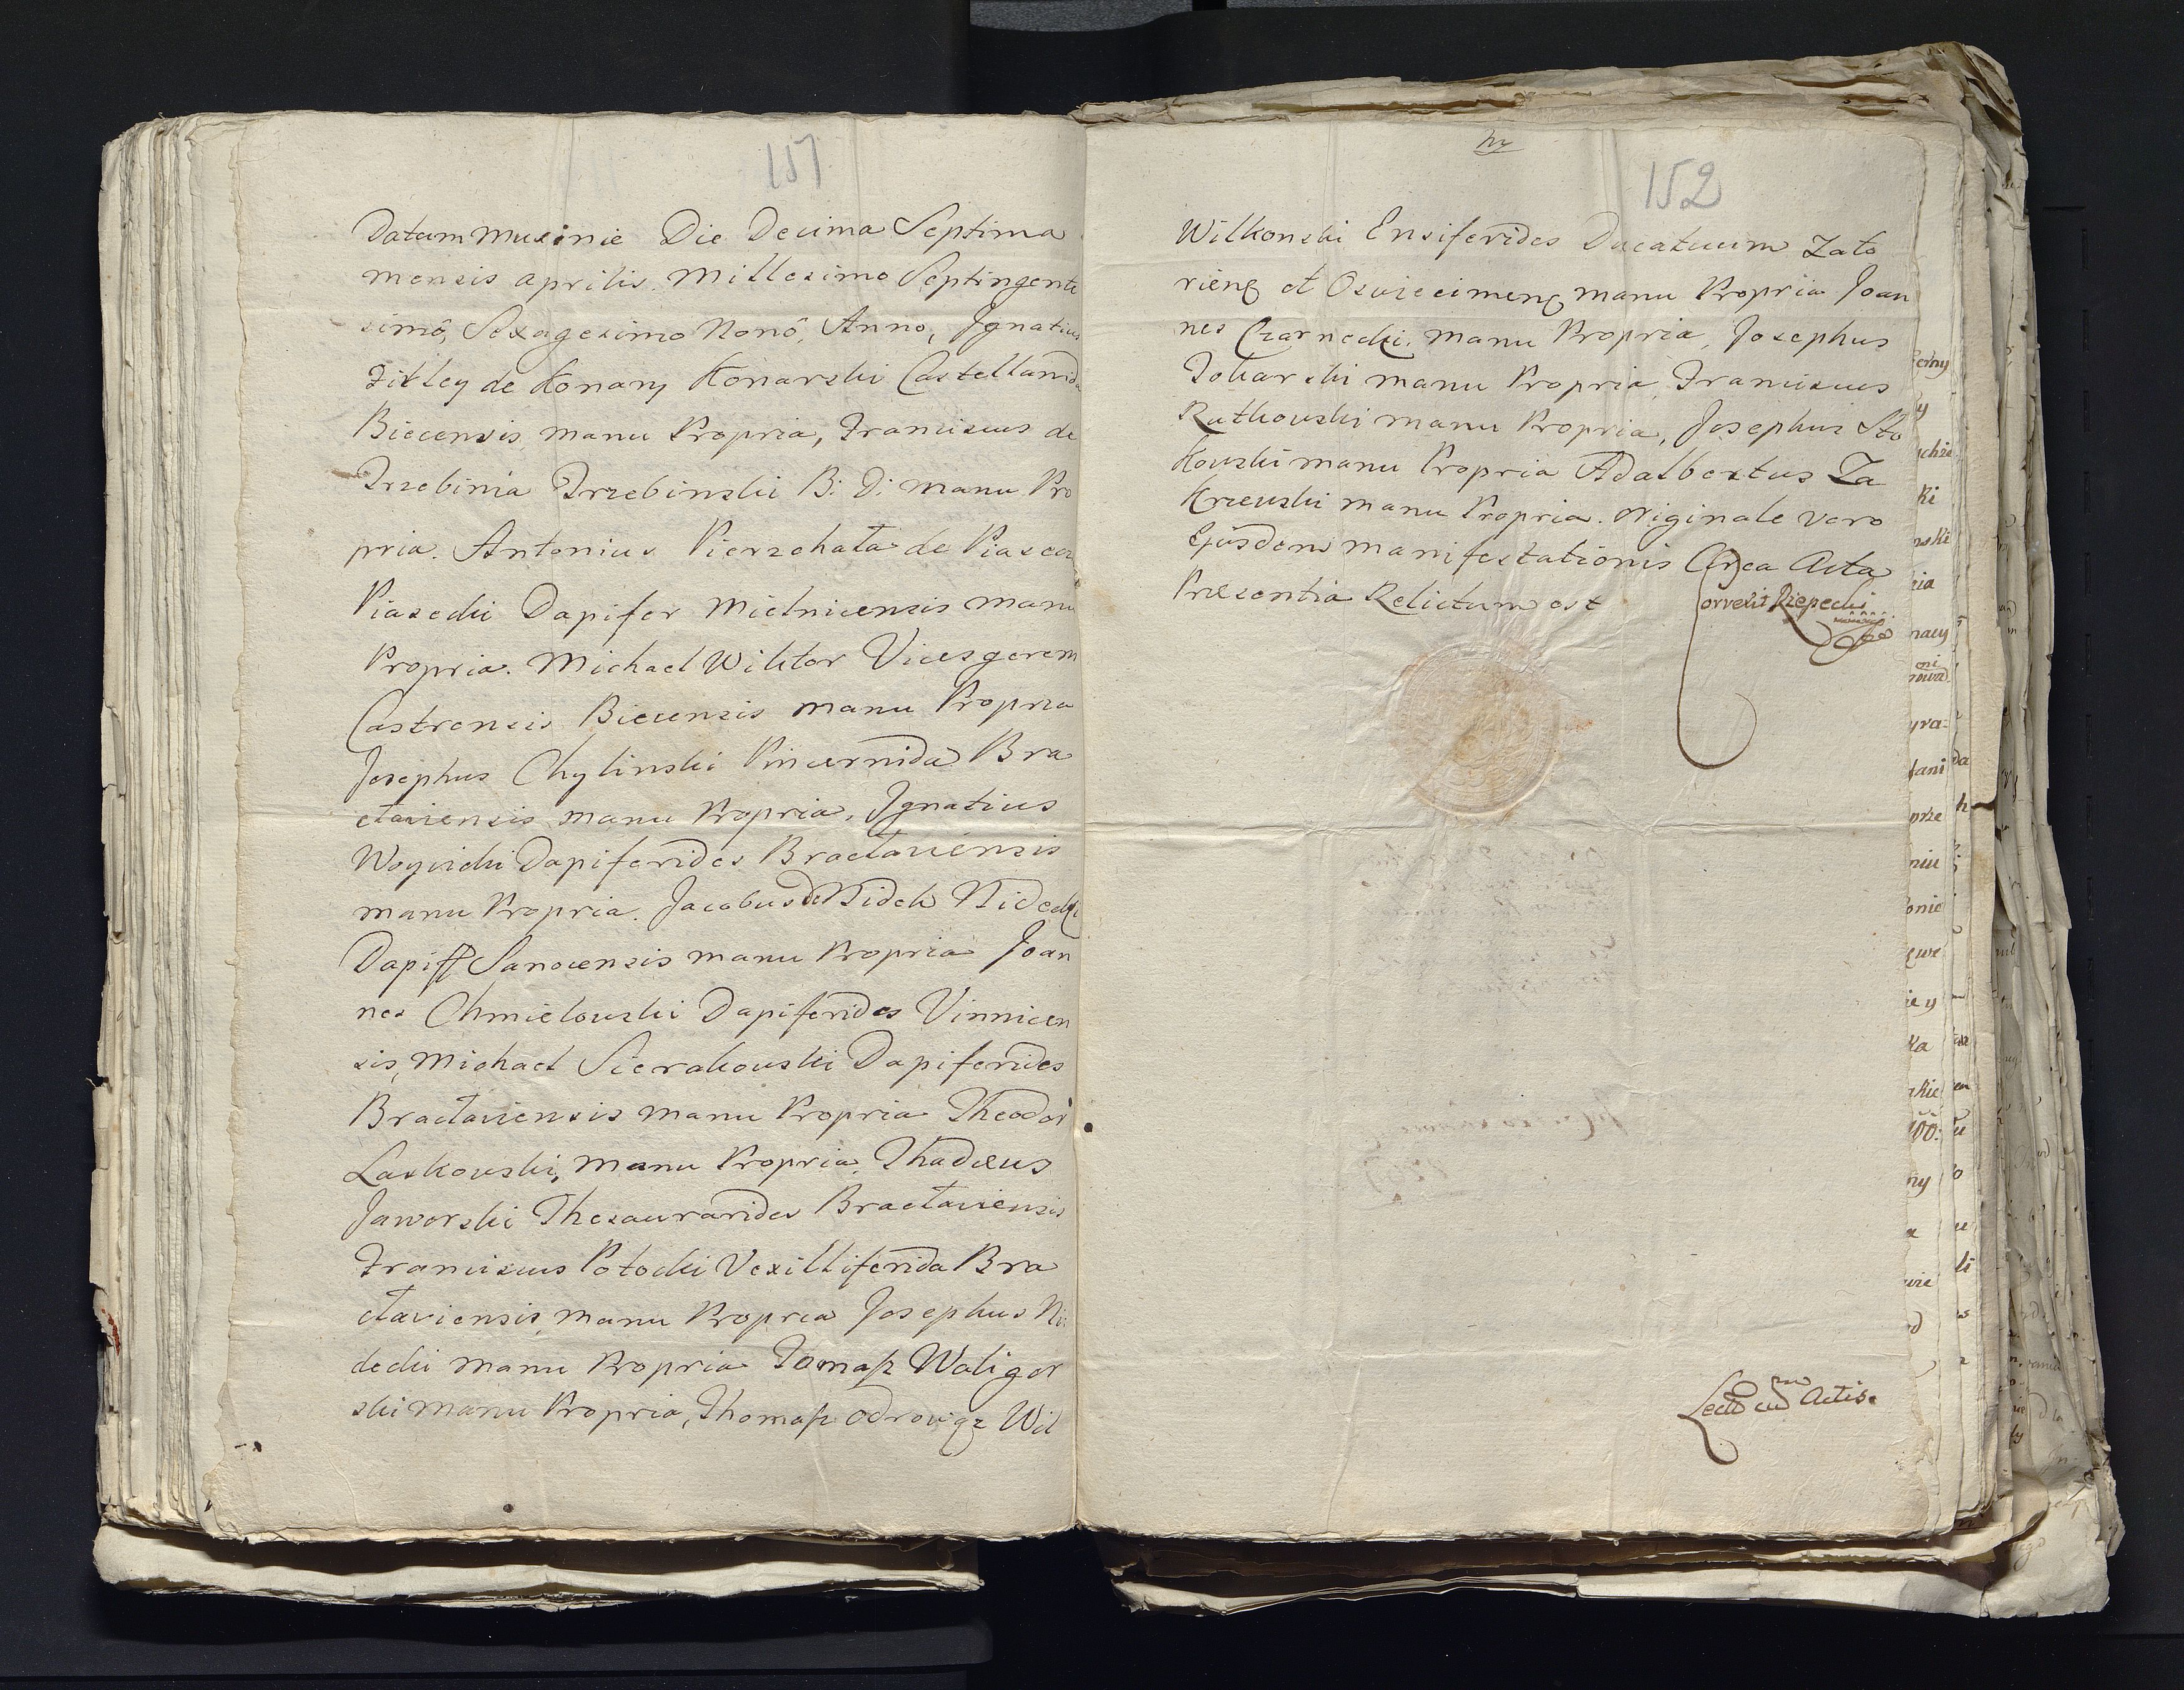 151
Datum Musinie Die Decima Septima
mensis aprilis Millesimo Septingente
simô, Sexagesimo Nonô, Anno, Ignatius
de Konary Konarski Castellanida
Biecensis manu Propria, Franciscus de
Trzebinia Trzebinski B: D: manu Pro
pria. Antonius Pierzchata de
Piasecki Dapifer Mielnicensis manu
Propria. Michael Wiktor Vicesgerem
Castrensis Biecensis manu Propria
Josephus Chylinski Pincernida Bra
claviensis manu Propria, Ignatius
Woyicki Dapiferides Braclaviensis
manu Propria. Jacobus de Nidek Nidecki
Dapiff Sanocensis manu Propria Joan
nes Chmielowski Dapiferides Vinnicen
sis, Michael Sierakowski Dapiferides
Braclaviensis manu Propria Theodor
Laskowski, manu Propria, Thadæus
Jaworski Thesaurarides Braclaviensis
Franciscus Potocki Vexilliferida Bra
claviensis manu Propria Josephus Ni
decki manu Propria Tomasz Waligor
ski manu Propria, Thomasz Odrowąz Wil
152
Wilkonski Ensiferides Ducatuum Zato
rienę et Osviecimenę manu Propria Joan
nes Czarnecki. manu Propria, Josephus
manu Propria, Franciscus
Rutkowski manu Propria, Josephus Sto
kowski manu Propria Adalbertus Za
krzewski manu Propria. Originale vero
Ejusdem manifestationis Circa Acta
Præsentia Relictum est
Correxit Rzepecki
Lectũ cũ Actis.